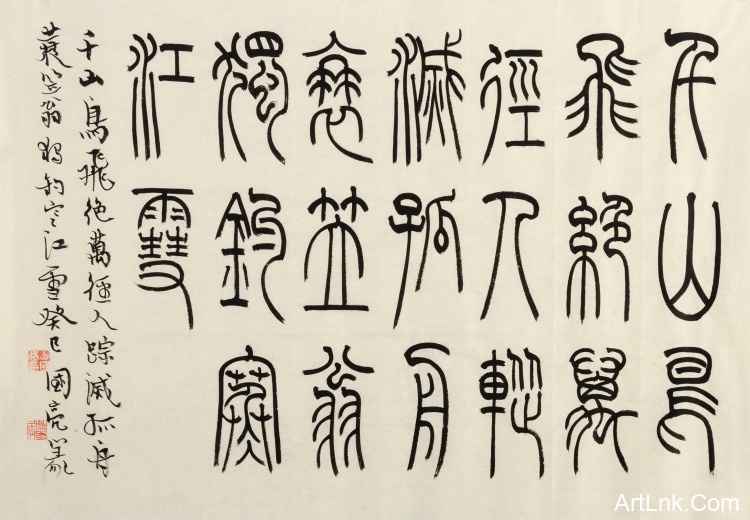 千山鳥
飛絕萬
徑人蹤
滅孤舟
蓑笠翁
獨釣寒
江雪
千山鳥飛絕萬徑人踪滅孤舟
蓑笠翁獨釣寒江雪癸巳國亮篆
ArtLnk.Com